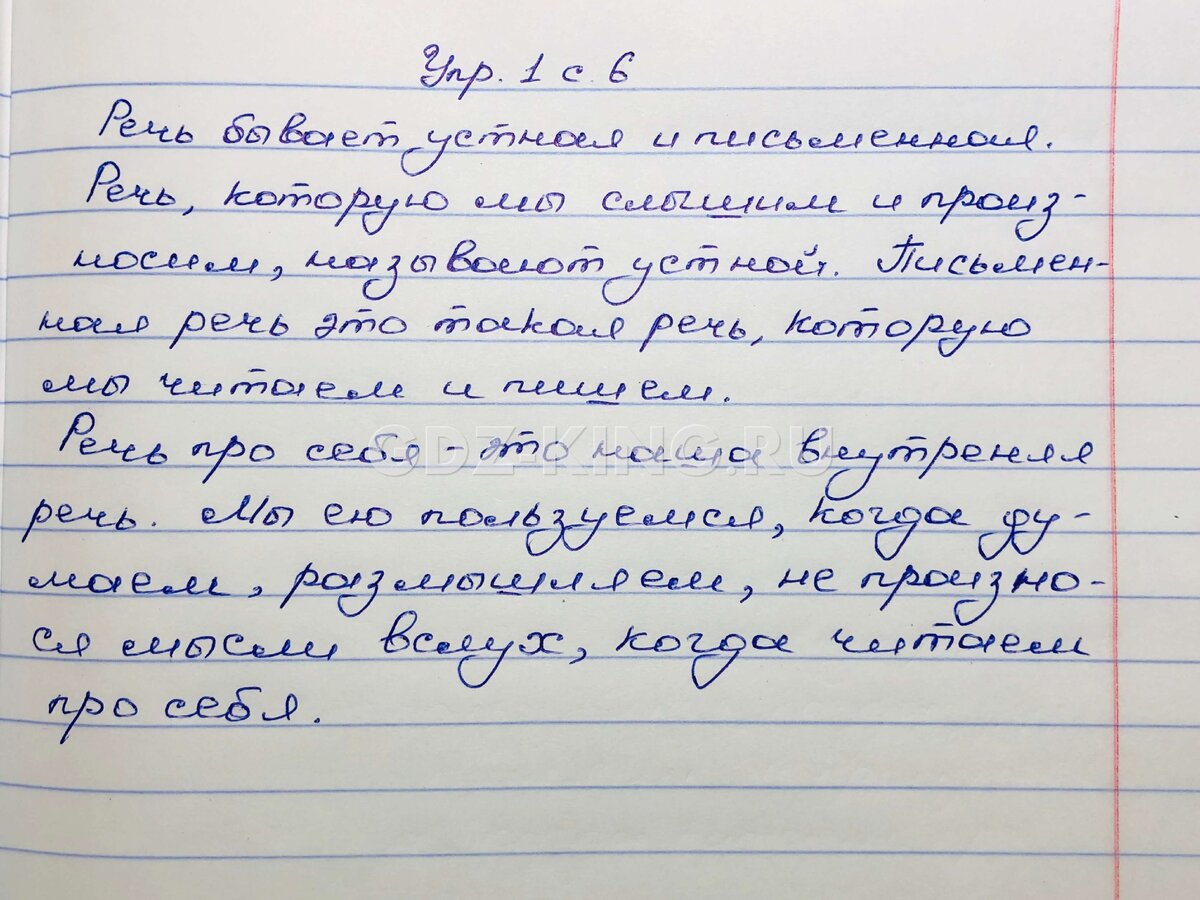 Упр. 1 с. 6
Речь бывает устная и письменная.
Речь, которую мы слышим и произ-
носим, называют устной. Письмен-
ная речь это такая речь, которую
мы читаем и пишем.
Речь про себя - это наша внутреняя
GDZ-KING.RU
речь. Мы ею пользуемся, когда ду-
маем, размышляем, не произно-
ся мысли вслух, когда читаем
про себя.